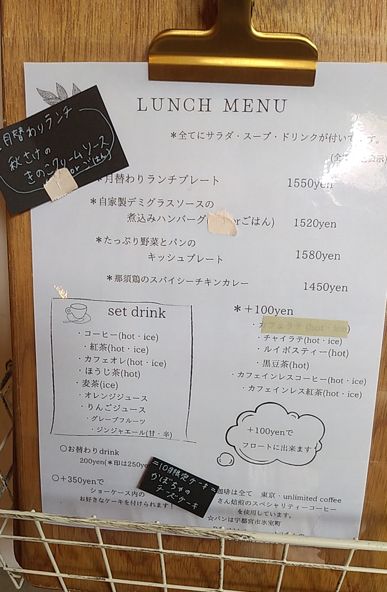 LUNCH MENU
*全てにサラダ・スープ・ドリンクが付いてます。
月替わりランチ
秋さけの
きのこクリームソース
(orごはん)
*月替わりランチプレート 1550yen
*自家製デミグラスソースの
煮込みハンバーグ orごはん) 1520yen
*たっぷり野菜とパンの
キッシュプレート 1580yen
*那須鶏のスパイシーチキンカレー 1450yen
set drink
・コーヒー(hot・ice)
・紅茶(hot・ice)
・カフェオレ(hot・ice)
・ほうじ茶(hot)
・麦茶(ice)
・オレンジジュース
・りんごジュース
・グレープフルーツ
・ジンジャエール(甘・辛)
*+100yen
・カフェラテ(hot・ice)
・チャイラテ(hot)
・ルイボスティー(hot)
・黒豆茶(hot)
・カフェインレスコーヒー(hot・ice)
・カフェインレス紅茶(hot・ice)
+100yenで
フロートに出来ます
○お替わりdrink
200yen(*印は250ye
○+350yenで
ショーケース内の
お好きなケーキを付けられます!
=10月限定ケーキ=
かぼちゃの
チーズケーキ
珈琲は全て 東京・unlimited coffee
さん焙煎のスペシャリティーコーヒー
を使用しています。
☆パンは宇都宮市氷室町